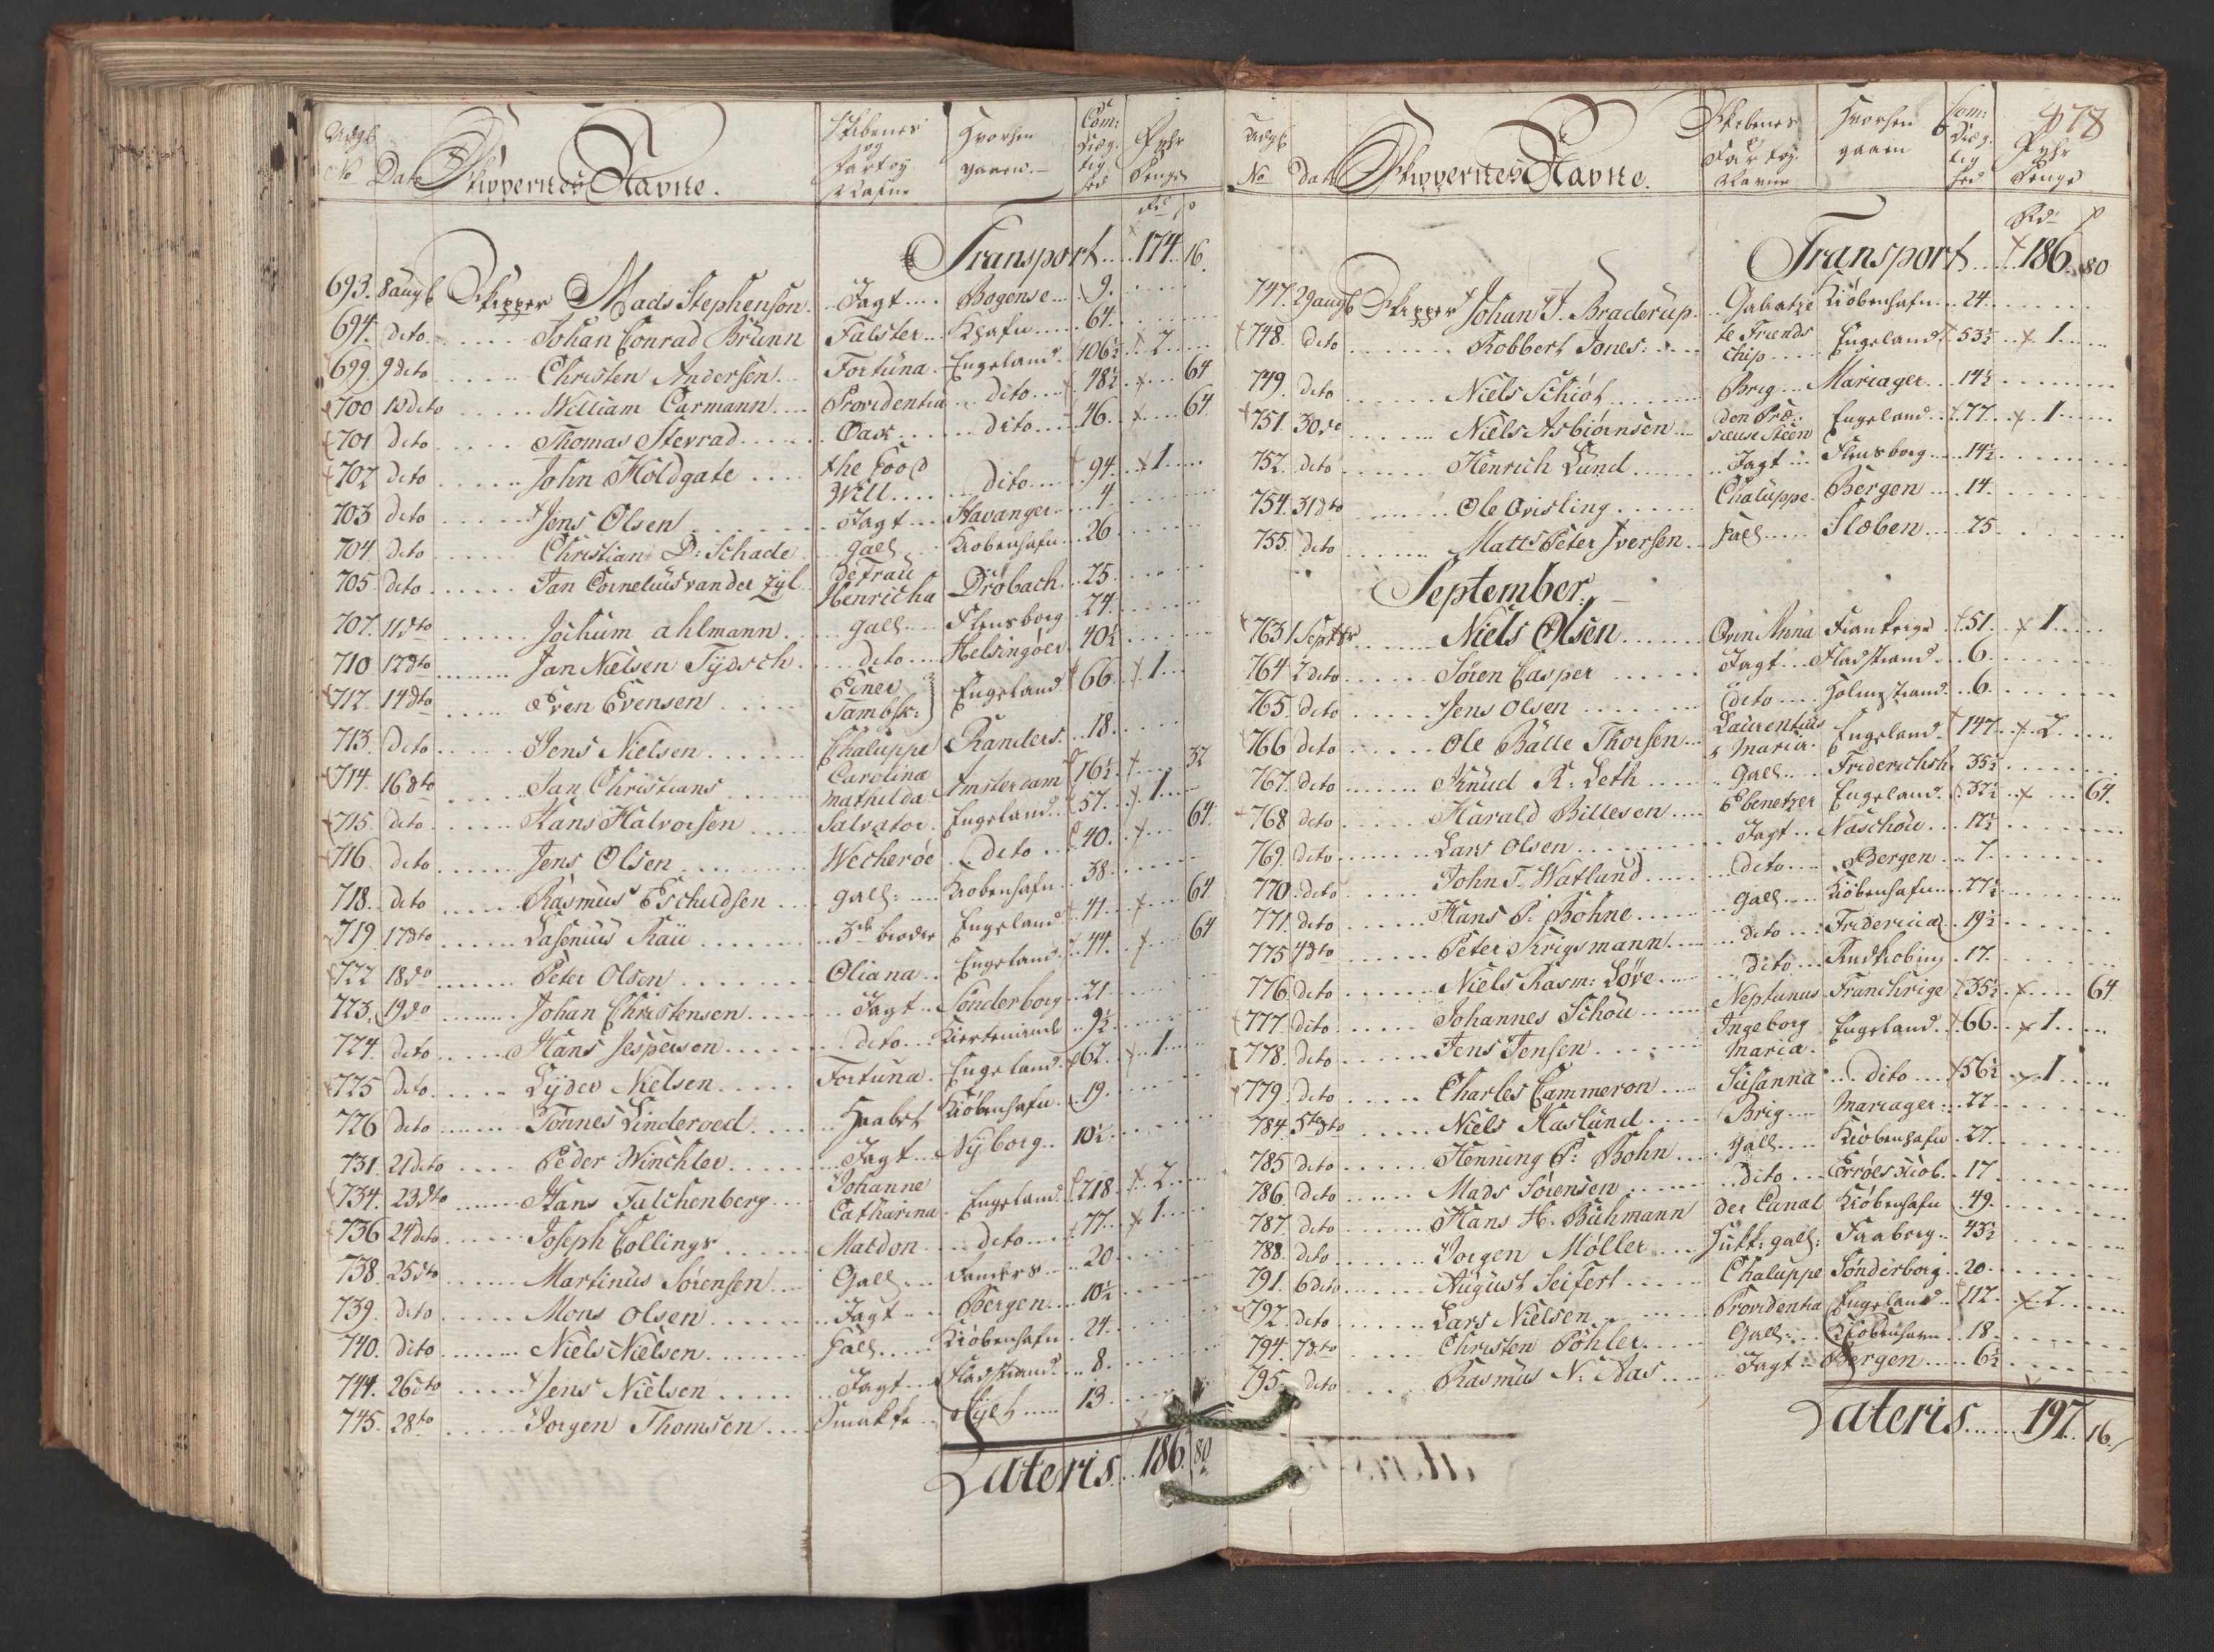 Udg:
No Dato Skippernes Navne. Skibenes og Fartøy Nafne Hvorhen gaaen. Com: Dræg: tig hed Fyhr Penge
Rdr s
Transport 174 16
693. 8 aug: Skipper Mads Stephenson Jagt Bogense 9.
694. dito Johan Conrad Brünn Falster Khafn 64.
699. 9 dito Christen Andersen Fortuna Engeland 106½ 2
700 10 dito William Carmann Providentia dito 48½ 64
701 dito Thomas Sterrad Oack dito 46 64
702 dito John Holdgate the Good
Will dito 94 1
703 dito Jens Olsen Jagt Stavanger 4
704 dito Christian D: Schade gall Kiøbenhafn 26
705 dito Jan Cornelius van der Zyl de Frau
Henricha Drøbach 25
707. 11 dto Jochum ahlmann gall Flensborg 24
710 12 dto Jan Nielsen Tÿdsch dito Helsingøer 40½
712 14 dto Even Evensen Einer
Tambsk: Engeland 66 1
713. dito Jens Nielsen Chaluppe Randers 18
714 16 dto Jan Christians Carolina
Mathilda Amsterdam 16½ 32
715 dito Hans Halvorsen Salvator Engeland 57 1
716 dito Jens Olsen Wecherøe dito 40. 64
718. dito Rasmus Eschildsen gall: Kiøbenhafn 38
719 17 dto Lasenius Rau 3de brødre Engeland 41 64
722 18 do Peter Olsen Oliana Engeland 44. 64
723. 19 do Johan Christensen Jagt Sønderborg 21
724. dito Hans Jesperson dito Kierteminde 9½
725 dito Lÿder Nielsen Fortuna Engeland 62. 1
726 dito Tønnes Linderoed Haabet Kiøbenhafn 19.
731. 21 dito Peder Winchler Jagt Nÿborg 10½
734. 23 dto Hans Falchenberg Johanne
Catharina Engeland 218 2
736 24 dito Joseph Collings Maldon dito 77 1
738. 25 dto Martinus Sørensen Gall Randers 20
739. dito Mons Olsen Jagt Bergen 10½
740. dito Niels Nielsen Gall Kiøbenhafn 24.
744. 26 dto Jens Nielsen Jagt Fladstrand 8.
745. 28 to Jørgen Thomsen Smakke Sÿlt 13
Lateris 186 80
478
Udg:
No Dato Skippernes Navne. Skibenes Fartøy Navne Hvorhen gaaen Com: Dræg: tig hed Fyhr Penge
Rdr s
Transport 186 80
747. 29 aug: Skipper Johan J. Braderup Galeatze Kiøbenhafn 24
748. dito Robbert Jones te Friends
chip Engeland 53½ 1
749. dito Niels Schiøt Brig Mariager 14½
751. 30 do Niels Asbiørnsen Den Præ:
sieuse Steen Engeland 77 1
752. dito Henrich Lund Jagt Flensborg 14½
754. 31 dto Ole Qvisling Chaluppe Bergen 14.
755. dito Matts Peter Iversen Gall Sleben 25
September
763 1 Septbr Niels Olsen Qvin Anna Frankrige 51. 1
764 2 dito Søren Casper Jagt Fladstrand 6.
765. dito Jens Olsen dito Holmestrand 6.
766 dito Ole Bälle Thorsen Laurentius
& Maria Engeland 147 2
767. dito Knud R: Leth Gall Friderichsh 35½
768 dito Harald Billesen Ebenetzer Engeland 37½ 64.
769. dito Lars Olsen Jagt Naschou 12½
770. dito John T. Watland dito Bergen 7.
771. dito Hans P: Bohne gall Kiøbenhafn 27½
775 4 dto Peter Krigsmann dito Fridericia 19½
776 dito Niels Rasm: Løve dito Rudkiøbing 17.
777 dito Johannes Schou Neptunus Franchrige 35½ 64
778. dito Jens Jensen Ingeborg
Maria Engeland 66 1
779. dito Charles Cammeron Susanna dito 56½ 1
784. 5te dto Niels Haslund Brig Mariager 22
785 dito Henning P: Bohn gall Kiøbenhafn 27.
786. dito Mads Sørensen dito Errøeskiøb 17
787. dito Hans H: Buhmann der Canal Kiøbenhafn 49.
788. dito Jørgen Møller Hukk: gall: Faaborg 43½
791. 6 dito August Seifert Chaluppe Sønderborg 20
792. dito Lars Nielsen Providentia Engeland 112. 2
794. 7 dto Christen Pøhler Gall Kiøbenhavn 18.
795 dito Rasmus N: Aas Jagt Bergen 6½
Lateris 197. 16.